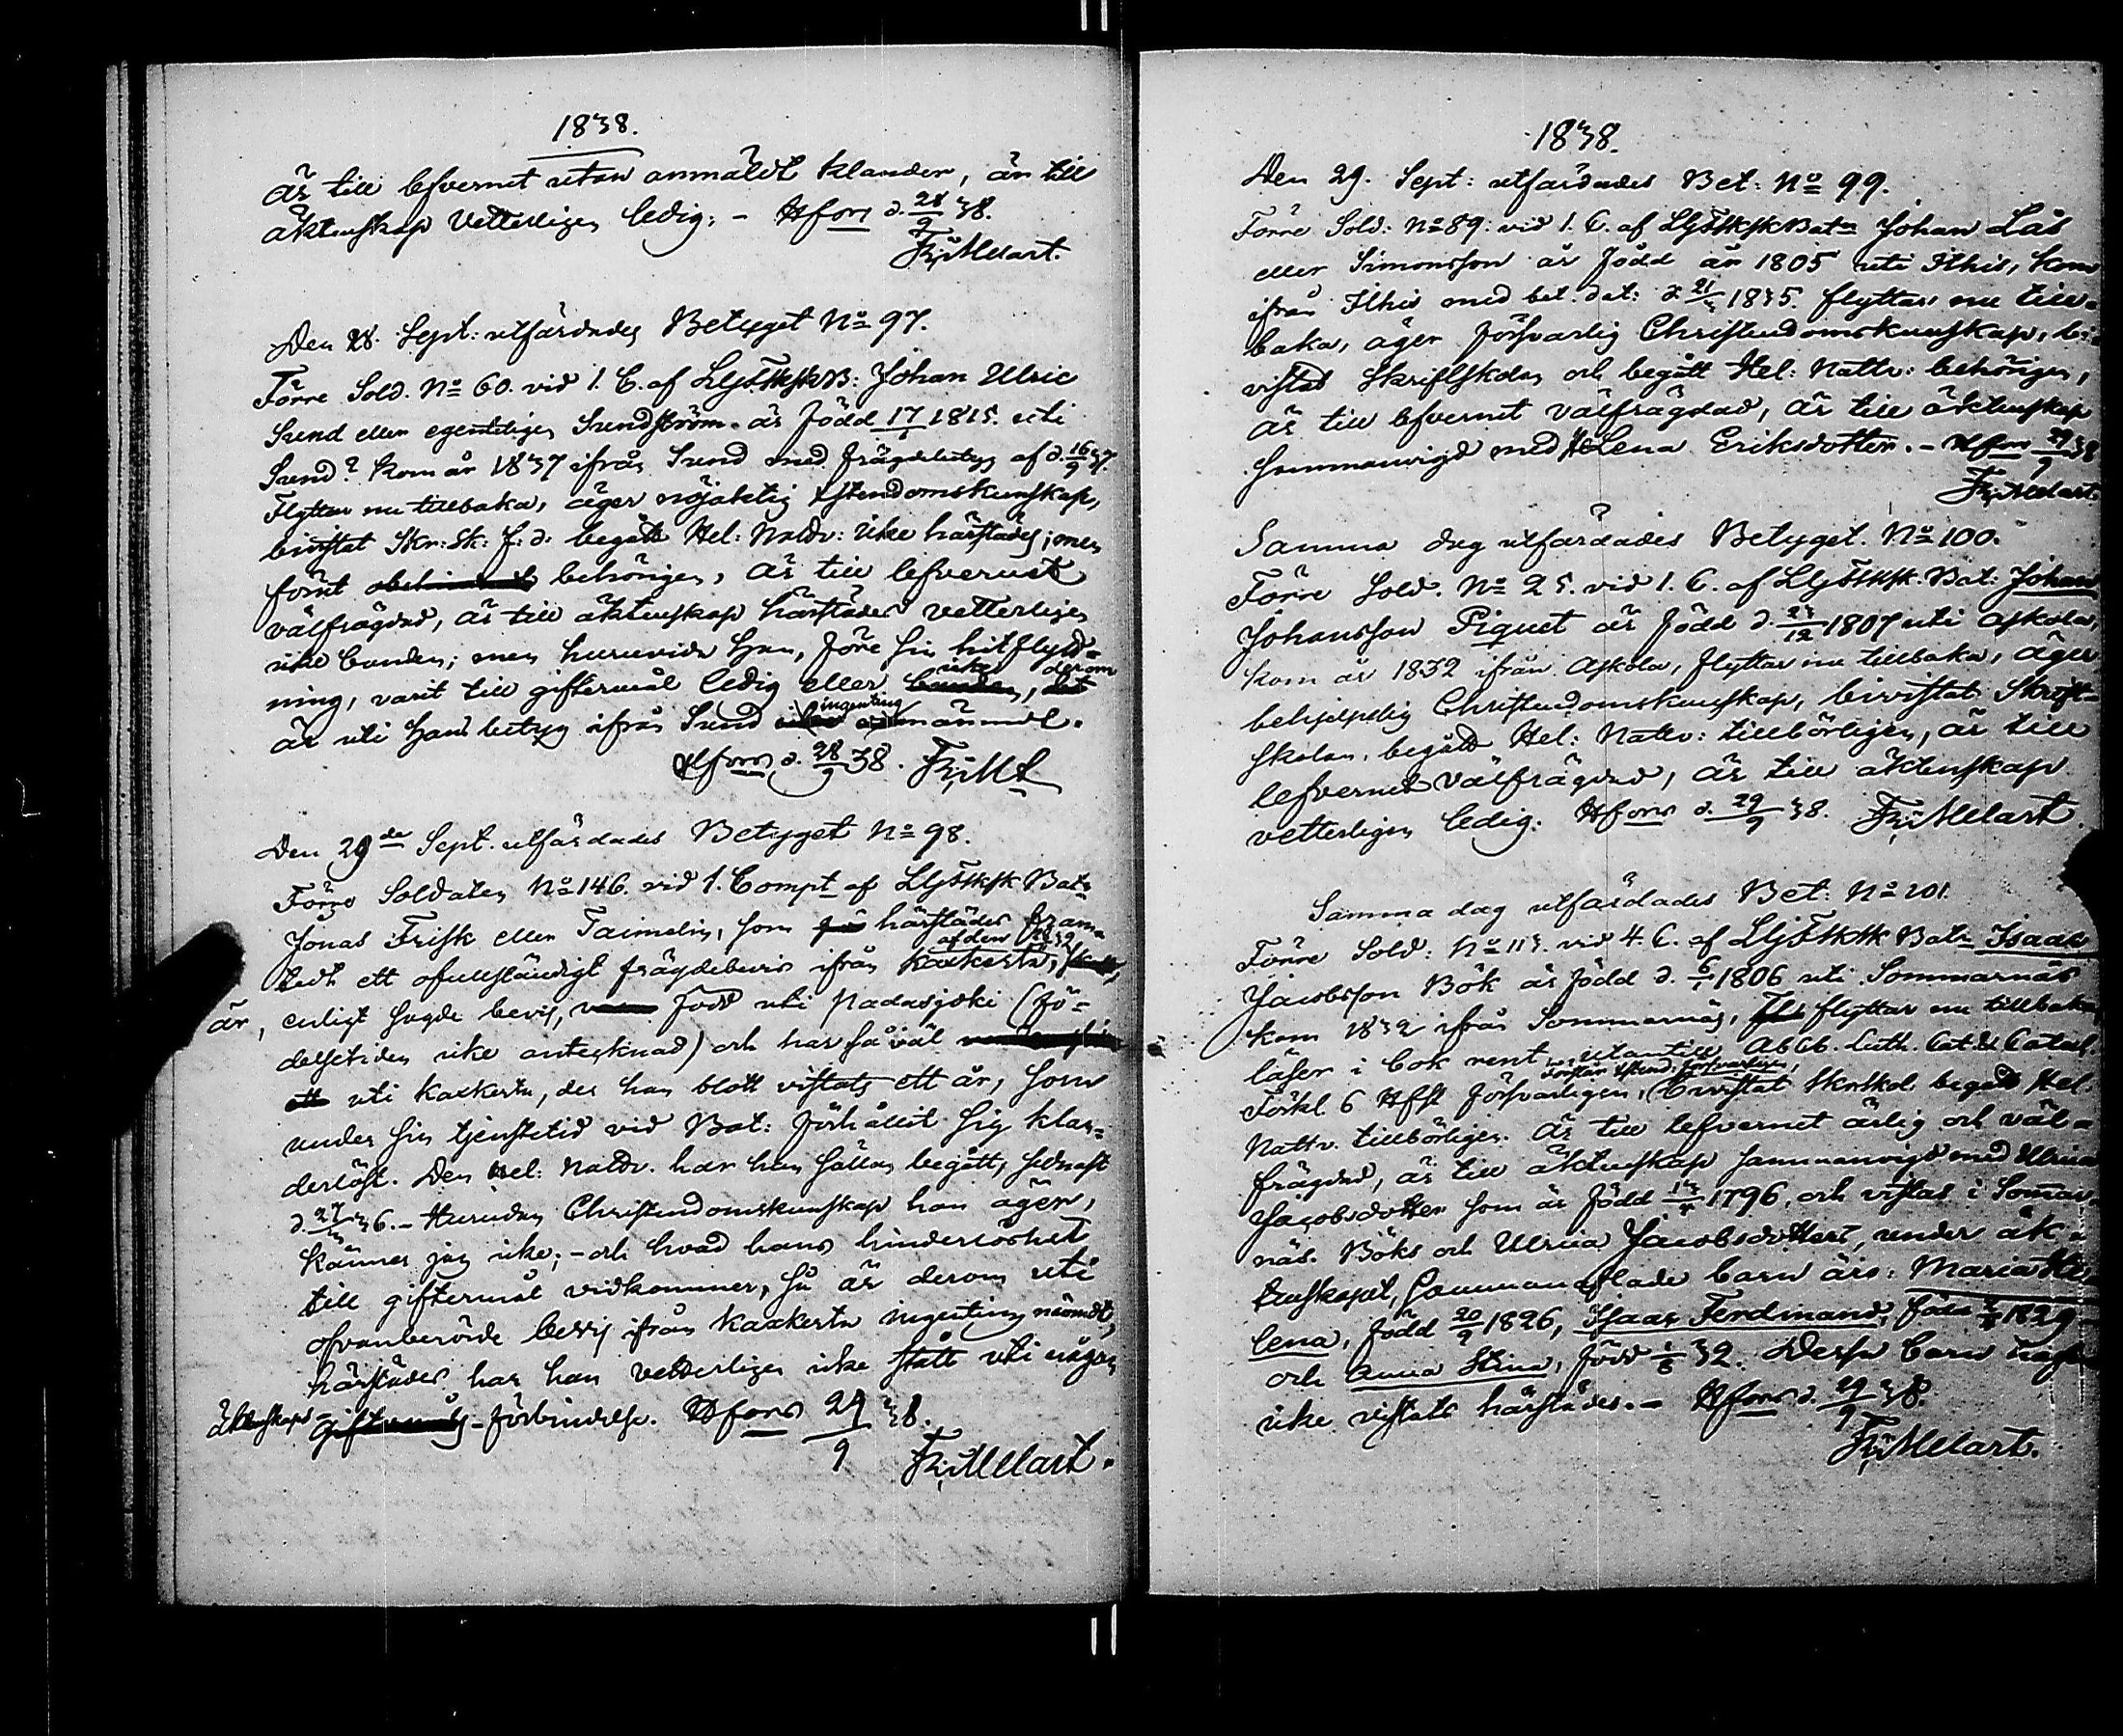 1838.
är till lefvernet utan anmäldt klander, är till
äktenskap vetterligen ledig. - Hfors d. 28/9 38.
Fr: Melart.
Den 28. Sept: utfärdades Betyget No 97.
Förre Sold. No 60. vid 1. C. af LGSkskB: Johan Ulric
Sund eller egenteligen Sundström. är född 17/1 1815. uti
Sund? kom år 1837 ifrån Sund med frägdebetyg af d. 16/9 37.
Flyttar nu tillbaka, äger nöjaktig Xstendomskunskap,
bivistat Skr: Sk: f: d. begått Hel: Nattv: icke härstädes; men
förut behörigen, är till lefvernet
välfrägdad, är till äktenskap härstädes vetterligen
icke bunden; men huruvida han, före sin hitflytt-
ning, varit till giftermål ledig eller icke, derom
är uti hans betyg ifrån Sund ingenting nämndt.
Hfors d. 28/9 38. Fr: Mt
Den 29de Sept. utfärdades Betyget No 98.
Förre Soldaten No 146. vid 1. Compt af LGSksk Batn
Jonas Frisk eller Taimelin, som härstädes fram-
tedt ett ofullständigt frägdebevis ifrån Kaxkerta, af den 1832
är, enligt sagde bevis, född uti Padasjoki (fö-
delsetiden icke antecknad) och har så väl
uti Kaxkerta, der han blott vistats ett år, som
under sin tjenstetid vid Bat: förhållit sig klan-
derlöst. Den Hel: Nattv. har han sällan begått, sednast
d. 27/3 36. - Hurudan Christendomskunskap han äger,
känner jag icke; - och hvad hans hinderlöshet
till giftermål vidkommer, så är derom uti
ofvanberörde bevis ifrån Kaxkerta ingenting nämndt,
härstädes har han vetterligen icke stått uti någon
äktenskaps-förbindelse. Hfors 29/9 38.
Fr: Melart.
1838.
Den 29. Sept: utfärdades Bet: No 99.
Förre Sold: No 89: vid 1. C. af LGSkskBatn Johan Lås
eller Simonsson är född år 1805 uti Ithis, kom
ifrån Ithis med bet. dat: d. 21/3 1835. flyttar nu till-
baka, äger försvarlig Christendomskunskap, bi-
vistat Skriftskolan och begått Hel: Nattv: behörigen,
är till lefvernet välfrägdad, är till äktenskap
sammanvigd med Helena Eriksdotter. - Hfors 29/9 38
Fr: Melart.
Samma dag utfärdades Betyget. No 100.
Förre Sold. No 25. vid 1. C. af LGSksk. Bat: Johan
Johansson Piquet är född d. 23/12 1807 uti Askola,
kom år 1832 ifrån Askola, flyttar nu tillbaka, äger
behjelplig Christendomskunskap, bivistat Skrift-
skolan, begått Hel: Nattv: tillbörligen, är till
lefvernet välfrägdad, är till äktenskap
vetterligen ledig. Hfors d. 29/9 38. Fr: Melart.
Samma dag utfärdades Bet: No 101.
Förre Sold: No 113. vid 4. C. af LGSksk Batn Isaac
Jacobsson Bök är född d. 6/1 1806 uti Sommarnäs
kom 1832 ifrån Sommarnäs, flyttar nu tillbaka,
läser i bok rent utantill Abcb. Luth. Cat. & Catech.
Förkl. 6 Hfst försvarligen, förstår Xstend: försvarligen, bivistat Skrskol. begått Hel.
Nattv. tillbörligen. är till lefvernet ärlig och väl-
frägdad, är till äktenskap sammanvigd med Ulrica
Jacobsdotter som är född 1796, och vistas i Sommar-
näs. Böks och Ulrica Jacobsdotters, under äk-
tenskapet, sammanaflade barn äro: Maria He-
lena, född 20/9 1826, Isaac Ferdinand, född 1829
och Anna Stina, född 32. Dessa barn hafva
icke vistats härstädes. - Hfors d. 29/9 38.
Fr: Melart.